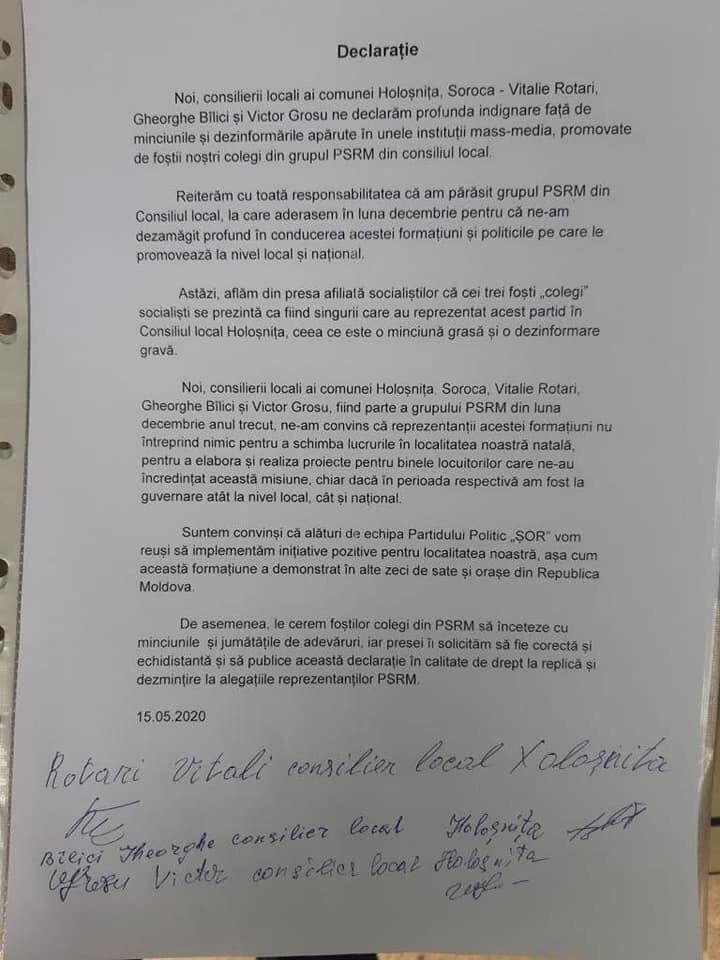 Declarație
Noi, consilierii locali ai comunei Holoșnița, Soroca - Vitalie Rotari,
Gheorghe Bîlici și Victor Grosu ne declarăm profunda indignare față de
minciunile și dezinformările apărute în unele instituții mass-media, promovate
de foștii noștri colegi din grupul PSRM din consiliul local.
Reiterăm cu toată responsabilitatea că am părăsit grupul PSRM din
Consiliul local, la care aderasem în luna decembrie pentru că ne-am
dezamăgit profund în conducerea acestei formațiuni și politicile pe care le
promovează la nivel local și național.
Astăzi, aflăm din presa afiliată socialiștilor că cei trei foști „colegi”
socialiști se prezintă ca fiind singurii care au reprezentat acest partid în
Consiliul local Holoșnița, ceea ce este o minciună grasă și o dezinformare
gravă.
Noi, consilierii locali ai comunei Holoșnița, Soroca, Vitalie Rotari,
Gheorghe Bîlici și Victor Grosu, fiind parte a grupului PSRM din luna
decembrie anul trecut, ne-am convins că reprezentanții acestei formațiuni nu
întreprind nimic pentru a schimba lucrurile în localitatea noastră natală,
pentru a elabora și realiza proiecte pentru binele locuitorilor care ne-au
încredințat această misiune, chiar dacă în perioada respectivă am fost la
guvernare atât la nivel local, cât și național.
Suntem convinși că alături de echipa Partidului Politic „ȘOR” vom
reuși să implementăm inițiative pozitive pentru localitatea noastră, așa cum
această formațiune a demonstrat în alte zeci de sate și orașe din Republica
Moldova.
De asemenea, le cerem foștilor colegi din PSRM să înceteze cu
minciunile și jumătățile de adevăruri, iar presei îi solicităm să fie corectă și
echidistantă și să publice această declarație în calitate de drept la replică și
dezmințire la alegațiile reprezentanților PSRM.
15.05.2020
Rotari Vitali consilier local Xoloșnita
Bîlici Gheorghe consilier local Holoșnița
Grosu Victor consilier local Holoșnița